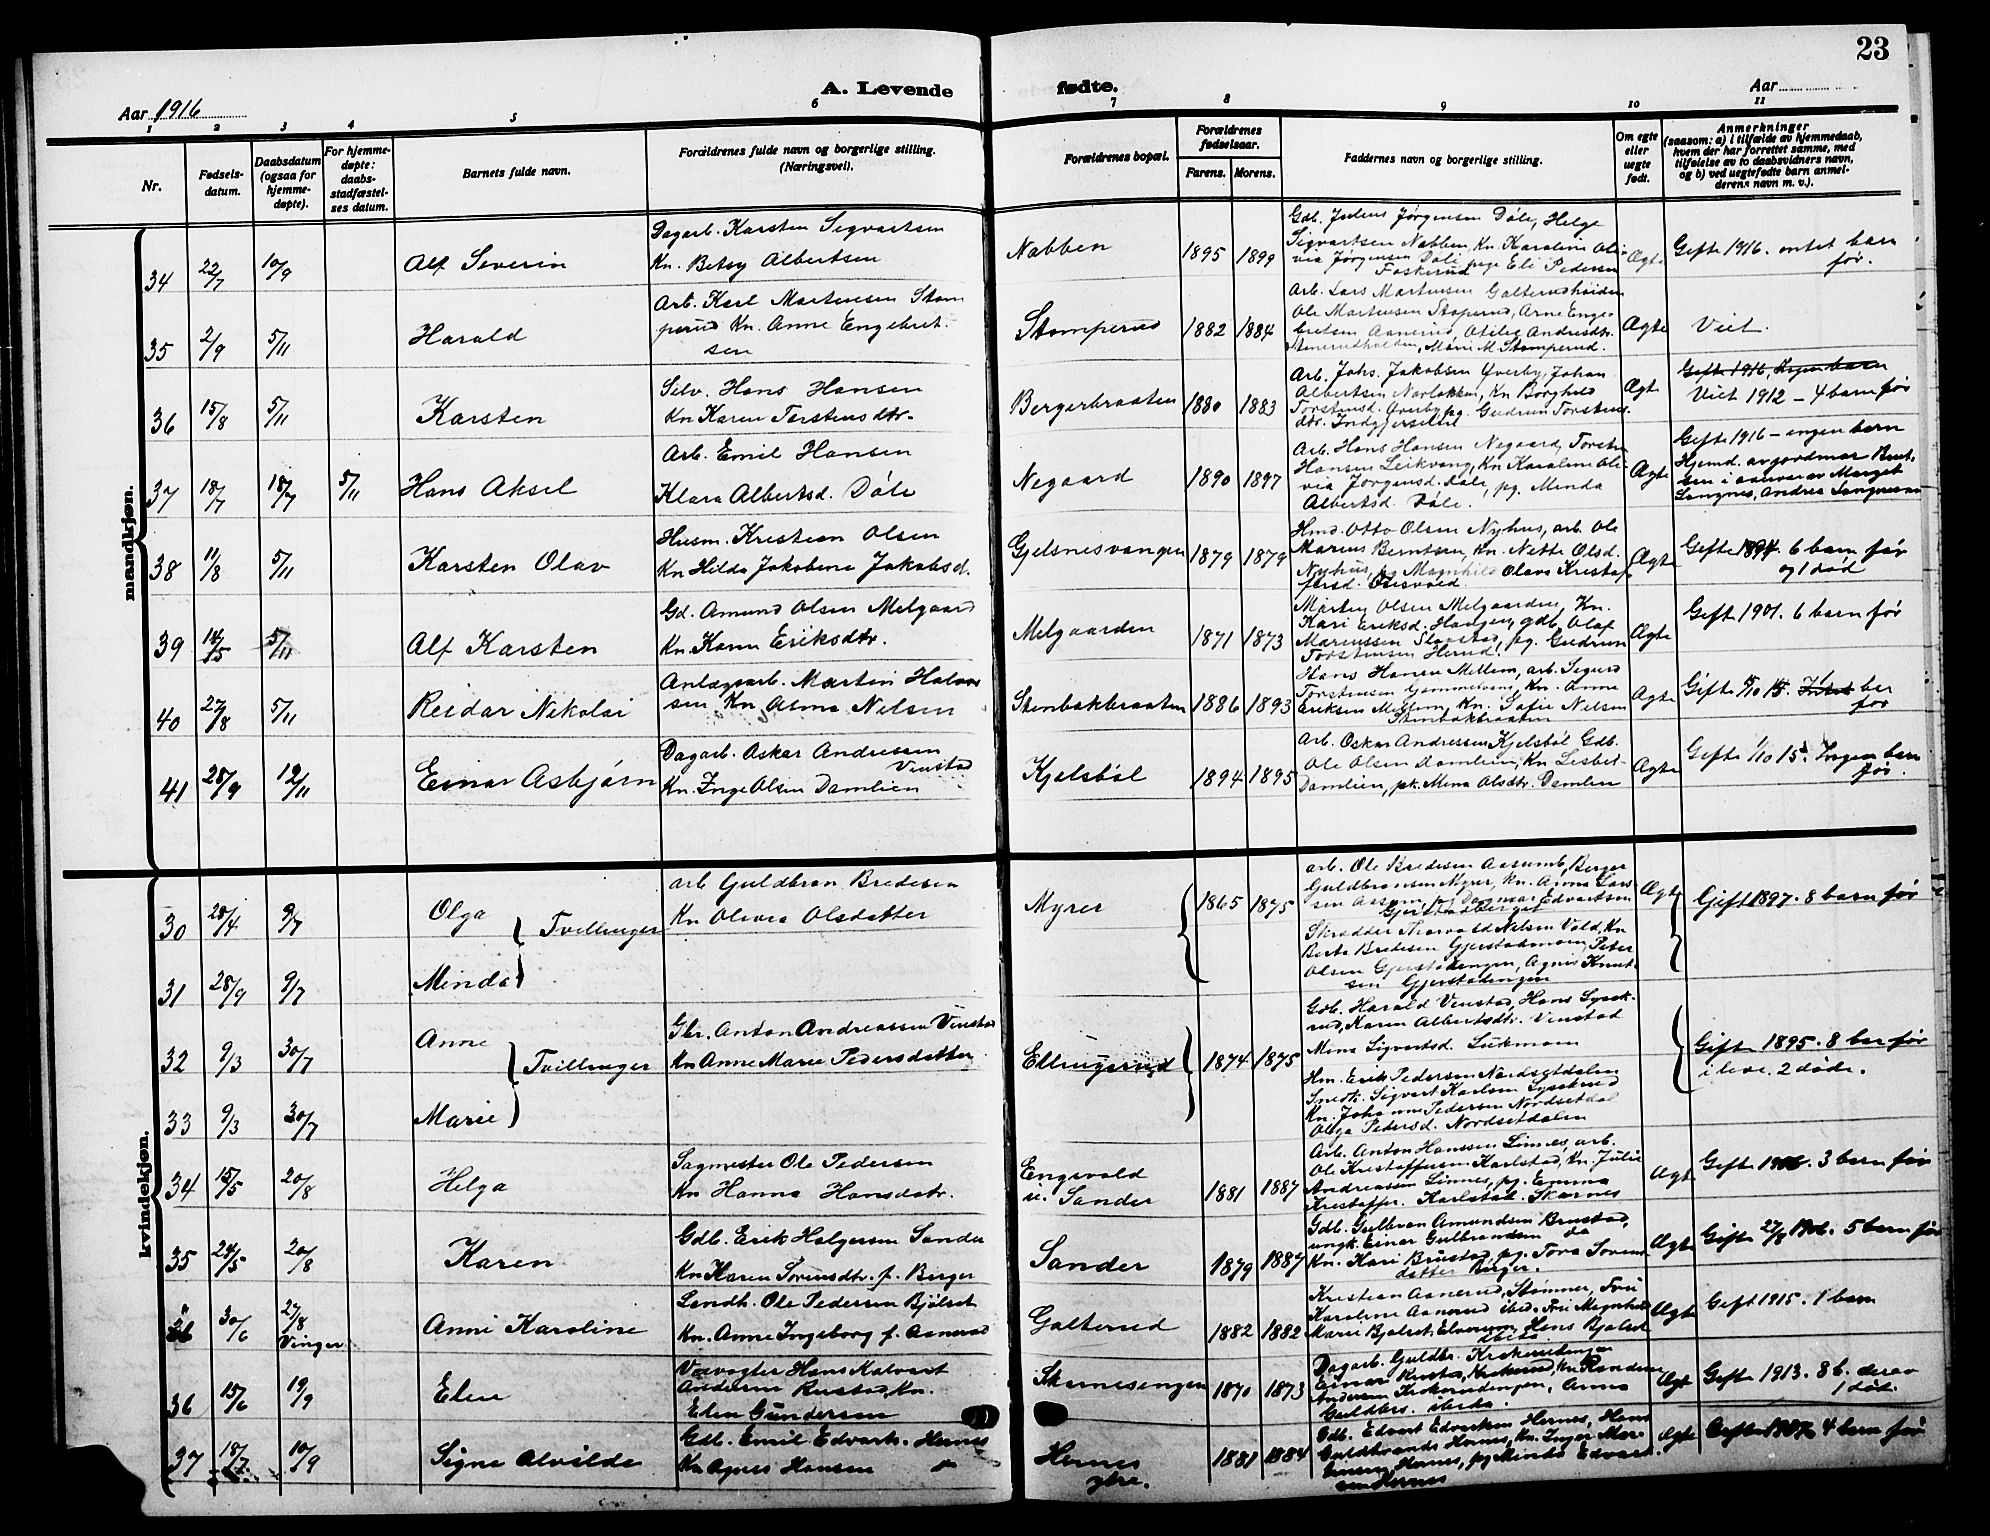 23
A. Levende fødte.
Aar 1916
Aar
1 2 3 4 5 6 7 8 9 10 11
Nr.
Fødsels-
datum.
Daabsdatum
(ogsaa for
hjemme-
døpte).
For hjemme-
døpte:
daabs-
stadfæstel-
ses datum.
Barnets fulde navn.
Forældrenes fulde navn og borgerlige stilling.
(Næringsvei).
Forældrenes bopæl.
Forældrenes
fødselsaar.
Farens. Morens.
Faddernes navn og borgerlige stilling.
Om egte
eller
uegte
født.
Anmerkninger
(saasom: a) i tilfælde av hjemmedaab,
hvem der har forrettet samme, med
tilføielse av to daabsvidners navn,
og b) ved uegtefødte barn anmel-
derens navn m. v.).
mandkjøn.
34 22/7 10/9 Alf Severin
Dagarb. Karsten Sigvartsen
Kn. Betsy Albertsen
Nabben 1895 1899
Gdb. Julius Jørgensen Døle, Helge
Sigvartsen Nabben, Kn. Karoline Oli-
via Jørgensen Døli, pige Eli Pedersen
Foskerud
Ægte
Gifte 1916. intet barn
før.
35 2/9 5/11 Harald
Arb. Karl Martinsen Stom
perud Kn. Anne Engebret-
sen
Stomperud 1882 1884
Arb. Lars Martinsen Galterudhøiden
Ole Martinsen Stoperud, Arne Enge
bretsen Aanerud, Otilie Andreasdtr.
Marie M. Stomperud.
Ægte
Viet.
36 15/8 5/11 Karsten
Selv. Hans Hansen
Kn Karen Torstensdtr.
Bergerbraaten 1880 1883
Arb. Johs. Jakobsen Øverby, Johan
Albertsen Norløkken, Kn Borghild
Torstensd. Øverby pg. Gudrun Torstens
dtr. Indgjerselet
Ægte
Gifte 1916, Ingen barn
Viet 1912 - 4 barn før
37 18/7 18/7 5/11 Hans Aksel
Arb. Emil Hansen
Klara Albertsd. Døle
Negaard 1890 1897
Arb. Hans Hansen Negaard, Torsten
Hansen Leikvang, Kn Karoline Oli-
via Jørgensd. Døle, pg. Minda
Albertsd. Døle.
Ægte
Gifte 1916 - ingen barn
Hjemd. av jordmor Brut-
sen i nærvær av Marget
Langnes, Andrea Langnesen
38 11/8 5/11 Karsten Olav
Husm. Kristian Olsen
Kn Hilda Jakobine Jakobsd.
Gjelsnesvangen 1879 1879
Hmd. Otto Olsen Nyhus, arb. Ole
Marius Berntsen, Kn. Nette Olsd.
Nyhus, pg Magnhild Olava Kristof
fersd.
Ægte
Gifte 6 barn før
og 1 død
39 14/5 5/11 Alf Karsten
Gd. Amund Olsen Melgaard
Kn. Karen Eriksdtr.
Melgaarden 1871 1873
Morten Olsen Melgaarden, Kn.
Kari Eriksd. Haugen, gdb. Olaf
Mareussen Slaastad, pg. Gudrun
Torstensen Herud.
Ægte
Gifte 1901. 6 barn før
40 27/8 5/11 Reidar Nikolai
Anlægsarb. Martin Halvor
sen Kn Alma Nilsen
Stenbakbraaten 1886 1893
Hans Hansen Mellem, arb. Sigurd
Torstensen Gammelvang, Kn. Anna
Eriksen Mellem, Kn. Sofie Nilsen
Stenbakbraaten
Ægte
Gifte 5/10 15. ber
før
41 28/9 12/11 Einar Asbjørn
Dagarb. Oskar Andressen
Venstad
Kn. Inge Olsen Damlien
Kjelsbøl 1894 1895
Arb. Oskar Andressen Kjelsbøl Gdb.
Ole Olsen Damlien, Kn. Lisbet
Damlien, pk. Mina Olsdtr. Damlien
Ægte
Gifte 1/10 15. Ingen barn
før.
kvindekjøn.
30 28/4 9/7 Olga
Tvillinger
arb Guldbran Bredesen
Kn Olivia Olsdatter
Myrer 1865 1875
arb. Ole Bredesen Aasumb, Berger
Guldbransen Myrer, Kn. Anna Lars
sen Aasum, pg Dagmar Edvartsen
Gjerstadberget
Ægte
Gift 1897. 8 barn før
31 28/9 9/7 Minda
Skrædder Thorvald Nilsen Vold, Kn
Berta Bredesen Gjerstadmoen, Peter
Olsen Gjerstadengen, Agnes Knut-
sen Gjerstadengen
32 9/3 30/7 Anne
Tvillinger
Gbr. Anton Andreassen Venstad
Kn Anne Marie Pedersdatter
Ellingsrud 1874 1875
Gdb. Harald Venstad, Hans Lysak-
rud, Karen Albertsdtr. Venstad
Mina Sigvartsd. Lukmoen
Gifte 1895. 8 barn før
i live. 2 døde.
33 9/3 30/7 Marie
Hm. Erik Pedersen Nordsetdalen
Snedk. Sigvart Karlsen Lysakrud
Kn. Johanne Pedersen Nordsetdal
Olga Pedersd. Nordsetdalen
34 15/5 20/8 Helga
Sagmester Ole Pedersen
Kn Hanna Hansdatr.
Engvold
u. Sander 1881 1887
Arb. Anton Hanssen Linnes, arb.
Ole Kristoffersen Karlstad, Kn. Julie
Andreassen Linnes, pg. Emma
Kristoffer. Karlstad. Skarnes
Ægt
Gifte 1906. 3 barn før
35 24/5 20/8 Karen
Gdb. Erik Holgersen Sander
Kn Karen Sørensdtr. f. Berger
Sander 1879 1887
Gdb. Gulbran Amundsen Brustad,
ungk. Einar Gulbrandsen do
Kn. Kari Brustad, pg. Tora Sorens
datter Berger.
Ægte
Gifte 27/8 1906. 5 barn før
30/6 27/8
Vinger
Anne Karoline
Landh. Ole Pedersen Bjølset
Kn. Anne Ingeborg f. Aanerud
Galterud 1882 1882
Kristian Aanerud, Strømmer, Frue
Karoline Aanerud ibid. Frue Magnhild
Marie Bjølset, Elverum, Hans Bjølset
Ægte
Gift 1915. 1 barn
36 15/6 19/9 Elen
Vævagter Hans Kalvart
Andersen Rustad, Kn.
Elen Gundersen
Skarnesengen 1870 1873
Dagarb. Guldbr. Krokerudengen
Anna
Guldbrs. ibidd.
Ægt
Gifte 1913. 8 b. derav
1 død.
37 18/7 10/9 Signe Alvilde
Gdb. Emil Edvarts. Hernes
Kn Agnes Hansen
Hernes
ytre. 1881 1884
Gdb. Edvart Edvartsen Hernes, Hans
Guldbrands Hernes, Kn. Inger Mar
Hernes, pg Minda Edvard-
sen Hernes
Ægt
Gifte 1907 4 barn før